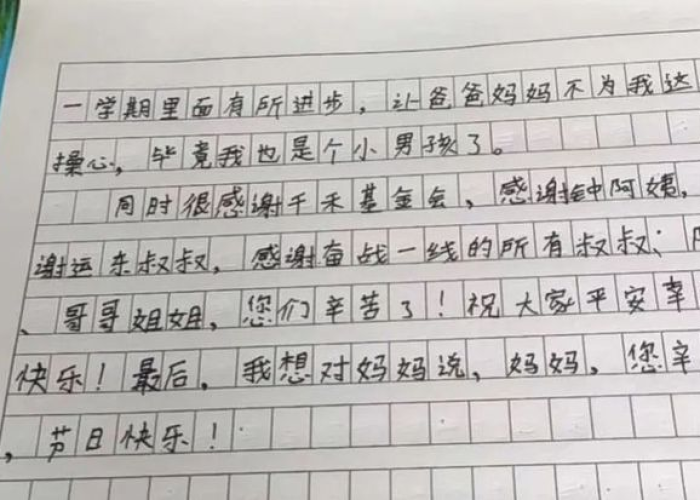 一学期里面有所进步，让爸爸妈妈不为我这
操心，毕竟我也是个小男孩了。
同时很感谢千禾基金会、感谢 阿姨，
谢运东叔叔，感谢奋战一线的所有叔叔；
、哥哥姐姐，您们辛苦了！祝大家平安幸
快乐！最后，我想对妈妈说、妈妈，您辛
，节日快乐！